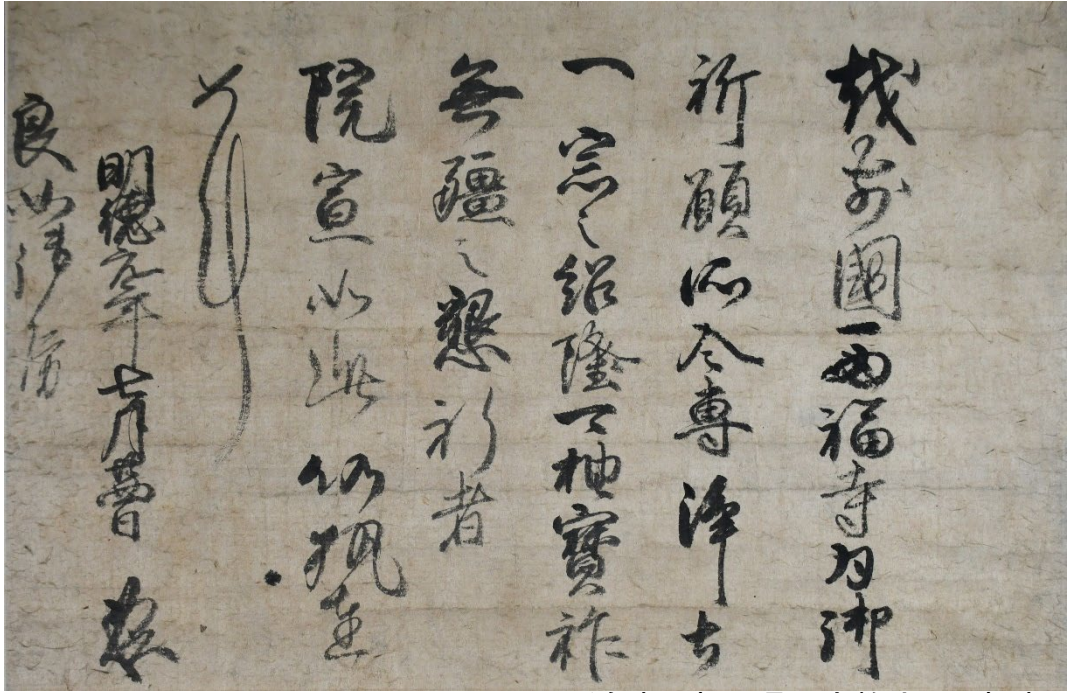 越前國西福寺為御
祈願所令専浄土
一宗之紹隆可抽寶祚
無疆之懇祈者
院宣如此仍執達
如件
明徳元年七月日
良如御房